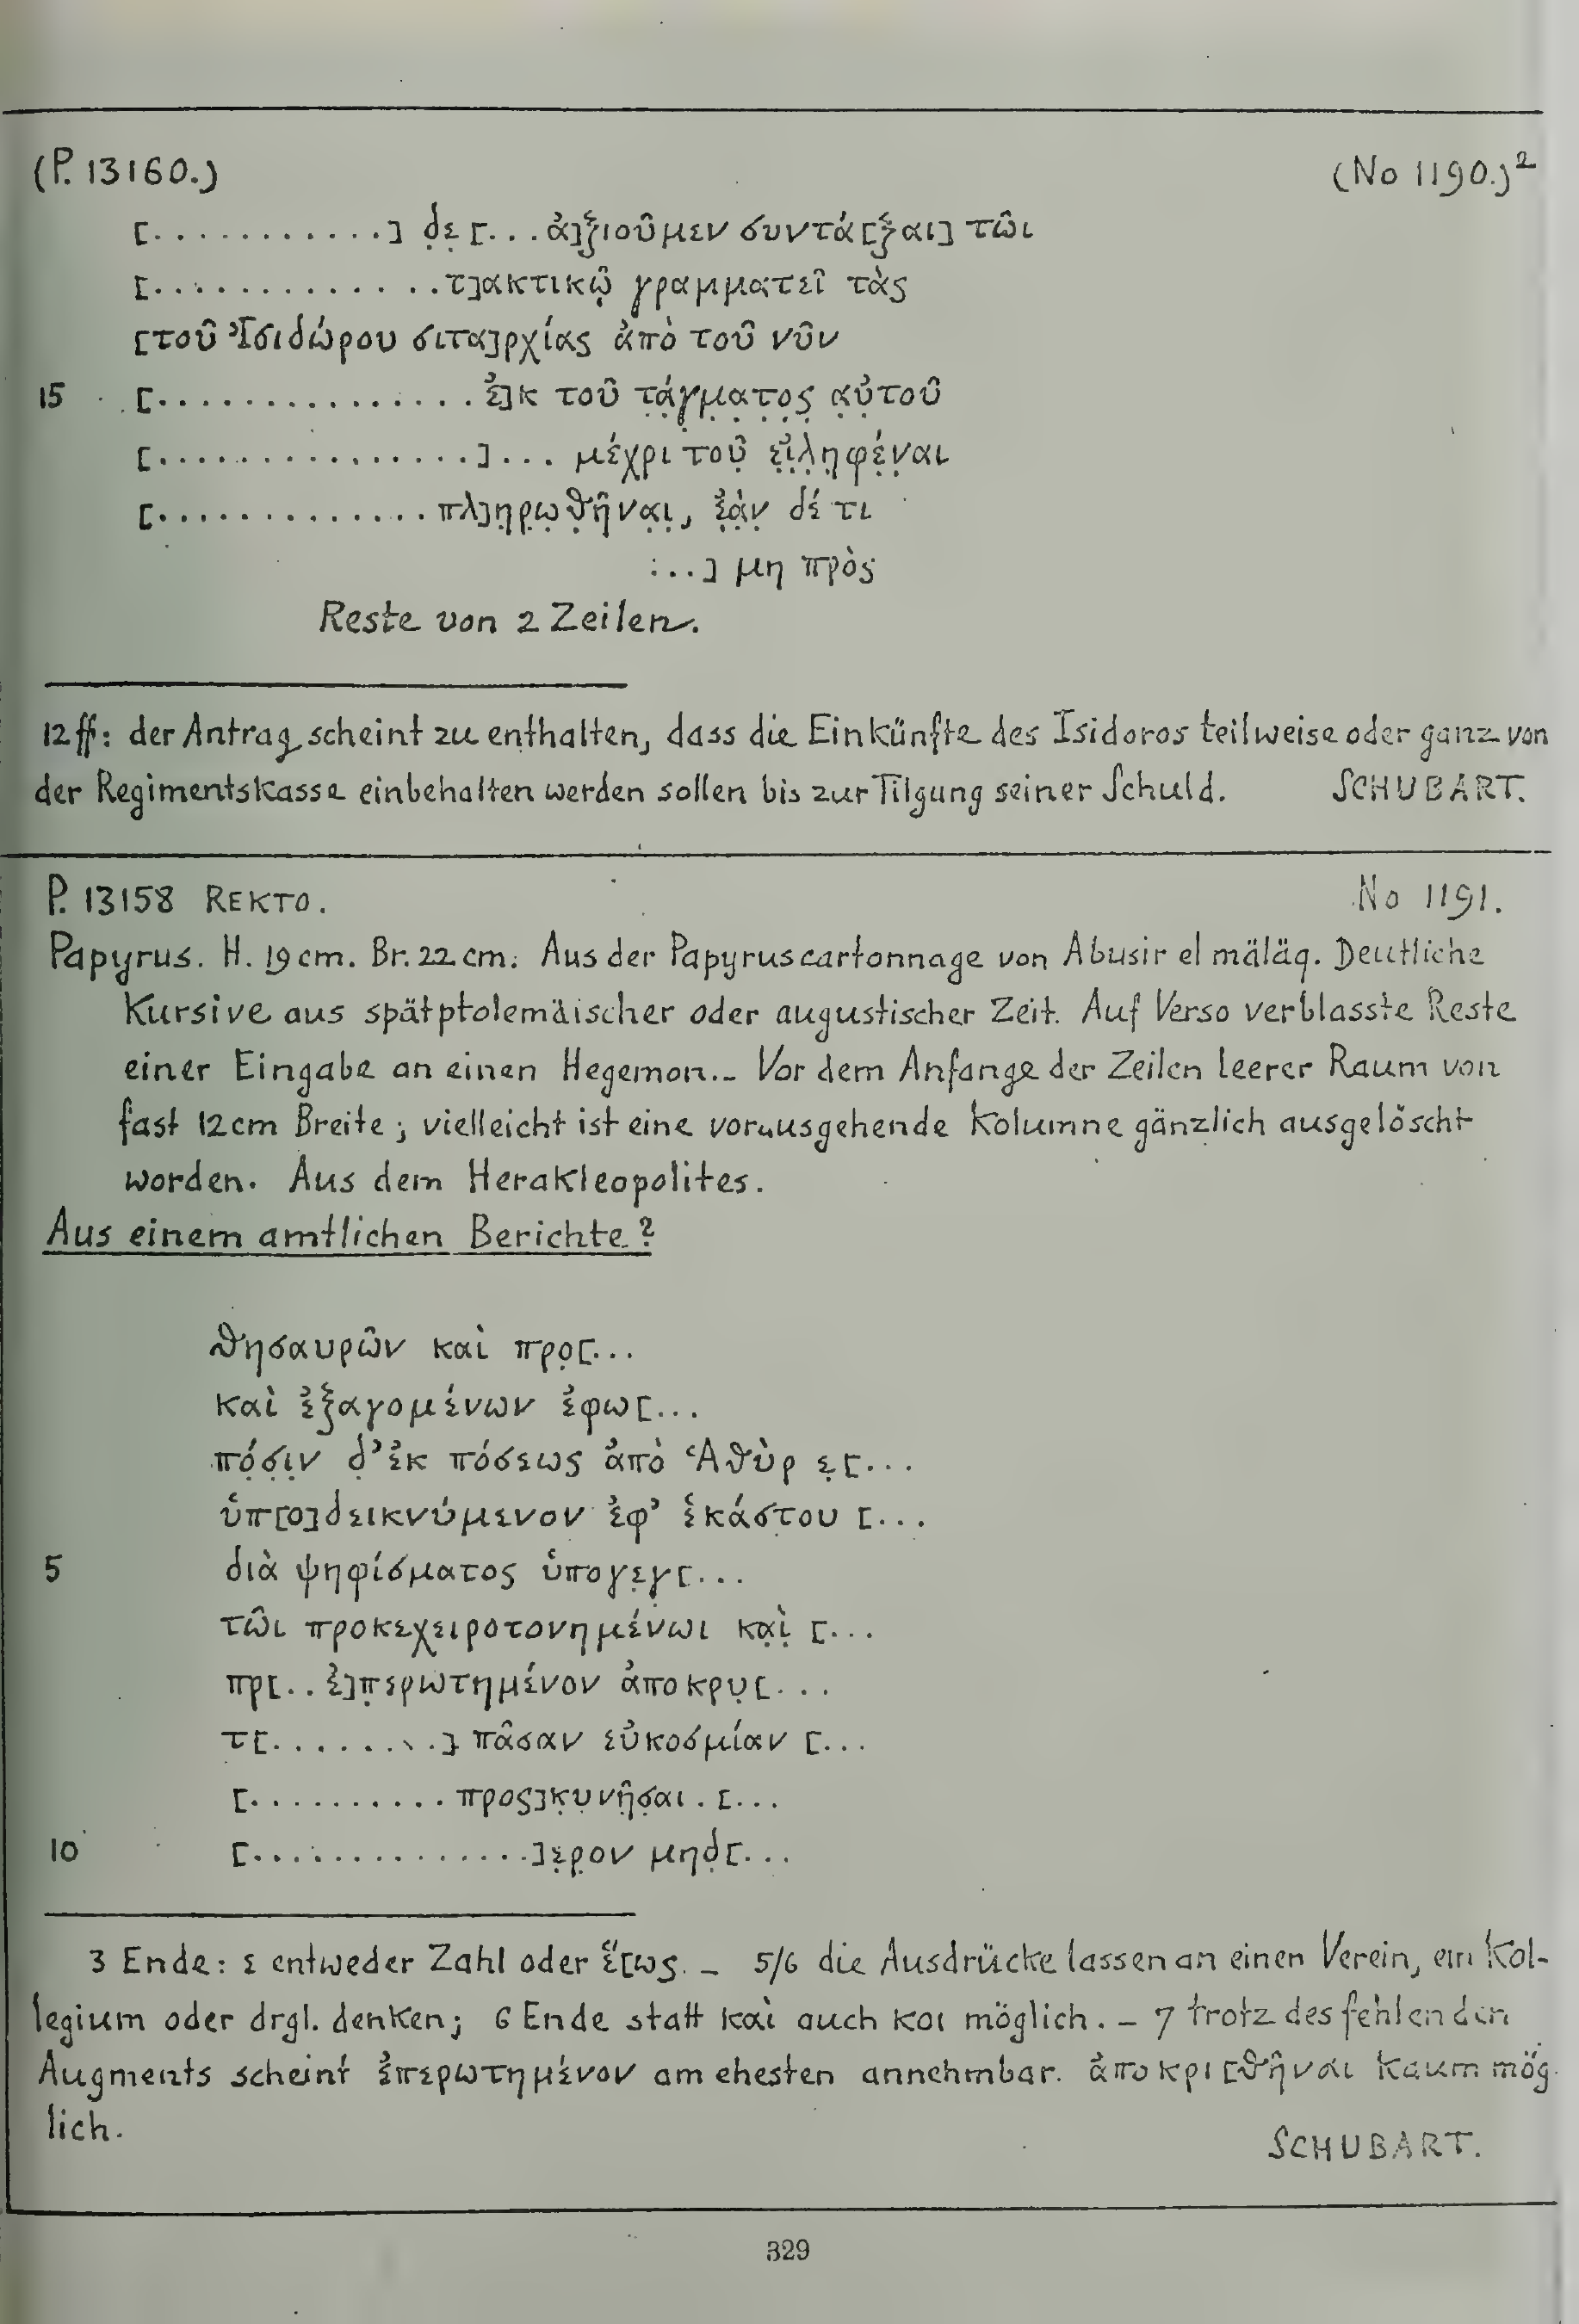 (P. 13160.) (No 1190.)²
[...........] δ̣ε̣ [...ἀ]ξ̣ιοῦμεν συντά[ξαι] τῶι
[.............τ]ακτικῷ γραμματεῖ τὰς
[τοῦ Ἰσιδώρου σιτα]ρχίας ἀπὸ τοῦ νῦν
15 [...............ἐ]κ τοῦ τ̣ά̣γ̣μ̣α̣τ̣ο̣ς̣ α̣ὐ̣τοῦ
[...............]... μέχρι τοῦ̣ ε̣ἰ̣λ̣η̣φέ̣ν̣αι
[.............πλ]η̣ρ̣ω̣θ̣ῆ̣να̣ι̣, ἐ̣ὰ̣ν̣ δέ τι
:..] μη πρὸς
Reste von 2 Zeilen.
12 ff: der Antrag scheint zu enthalten, dass die Einkünfte des Isidoros teilweise oder ganz von
der Regimentskasse einbehalten werden sollen bis zur Tilgung seiner Schuld. SCHUBART.
P. 13158 REKTO. No 1191.
Papyrus. H. 19 cm. Br. 22 cm. Aus der Papyruscartonnage von Abusir el mäläq. Deutliche
Kursive aus spätptolemäischer oder augustischer Zeit. Auf Verso verblasste Reste
einer Eingabe an einen Hegemon.– Vor dem Anfange der Zeilen leerer Raum von
fast 12 cm Breite; vielleicht ist eine vorausgehende Kolumne gänzlich ausgelöscht
worden. Aus dem Herakleopolites.
Aus einem amtlichen Berichte?
θησαυρῶν καὶ προ̣[...
καὶ ἐξαγομένων ἐφω[...
πό̣σ̣ι̣ν δ̣’ ἐκ πόσεως ἀπὸ Ἁθὺρ ε̣[...
ὑπ[ο]δεικνύμενον ἐφ’ ἑκάστου [...
5 διὰ ψηφίσματος ὑπογε̣γ̣[...
τῶι προκεχειροτονημένωι κα̣ὶ̣ [...
πρ[..ἐ]π̣ερωτημένον ἀποκρυ̣[...
τ[.........] πᾶσαν εὐκοσμίαν [...
[..........προς]κ̣υ̣νῆ̣σ̣αι . [...
10 [...............]ε̣ρ̣ον μηδ̣[...
3 Ende: ε entweder Zahl oder ἕ[ως. – 5/6 die Ausdrücke lassen an einen Verein, ein Kol-
legium oder drgl. denken; 6 Ende statt καὶ auch κοι möglich. – 7 trotz des fehlenden
Augments scheint ἐπερωτημένον am ehesten annehmbar. ἀποκρι[θῆναι kaum mög-
lich. SCHUBART.
329